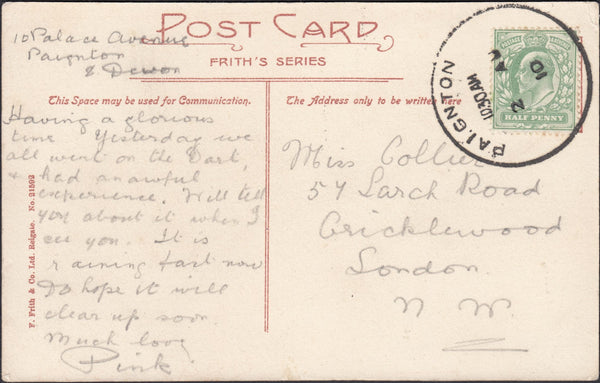 POST CARD
FRITH'S SERIES
10 Palace Avenue
Paignton
S Devon
This Space may be used for Communication.
The Address only to be written here
Having a glorious
time Yesterday we
all went on the Dart,
& had an awful
experience. Will tell
you about it when I
see you. It is
raining fast now
Do hope it will
clear up soon.
Much love
Pink.
Miss Collier
57 Larch Road
Cricklewood
London.
N. W.
PAIGNTON
10.30 AM
2
AU
10
HALF PENNY
F. Frith & Co. Ltd. Reigate. No. 21592